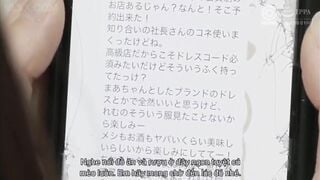 お店あるじゃん?なんと!そこ予
約出来た!
知り合いの社長さんのコネ使いま
くったけどね。
高級店だからこそドレスコード必
須みたいだけどそういうふく持っ
てたっけ?
まあちゃんとしたブランドのドレ
スとかで全然いいと思うけど、
れむのそういう服見たことないか
ら楽しみー
メシもお酒もヤバいくらい美味し
いらしいから楽しみにしててー!
Nghe nói đồ ăn và rượu ở đây ngon tuyệt cú
mèo luôn. Em hãy mong chờ đến lúc đó nhé.